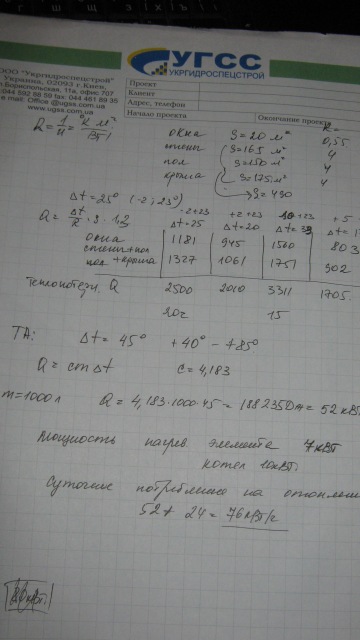 УГСС
УКРГИДРОСПЕЦСТРОЙ
ООО "Укргидроспецстрой"
Украина, 02093 г.Киев,
ул.Бориспольская, 11а, офис 707
044 592 86 59 fax 044 461 89 35
e mail: Office @ugss.com.ua
www.ugss.com.ua
Проект
Клиент
Адрес, телефон
Начало проекта Окончание проекта
R= 1/U = °K м²/Вт
окна S=20 м² 0,55
стены S=165 м² 4
пол S=150 м² 4
крыша S=175 м² 4
S=490
Δt=25° (-2; 23°)
Q= Δt/R · S · 1,2
-2+23 +2+23 +5
Δt=25 Δt=20
окна 1181 945 1560 803
стены+пол
пол +крыша 1327 1061 1751 902
Теплопотери, Q 2500 2010 3311 1705
15
ТА: Δt = 45° +40° - +85°
Q = cmΔt c = 4,183
m=1000 л Q = 4,183·1000·45 = 188235Дж = 52 кВт
Мощность нагрев. элемента 7кВт
котел 10кВт
Суточное потребление на отоплен
52+ 24 = 76кВт/с